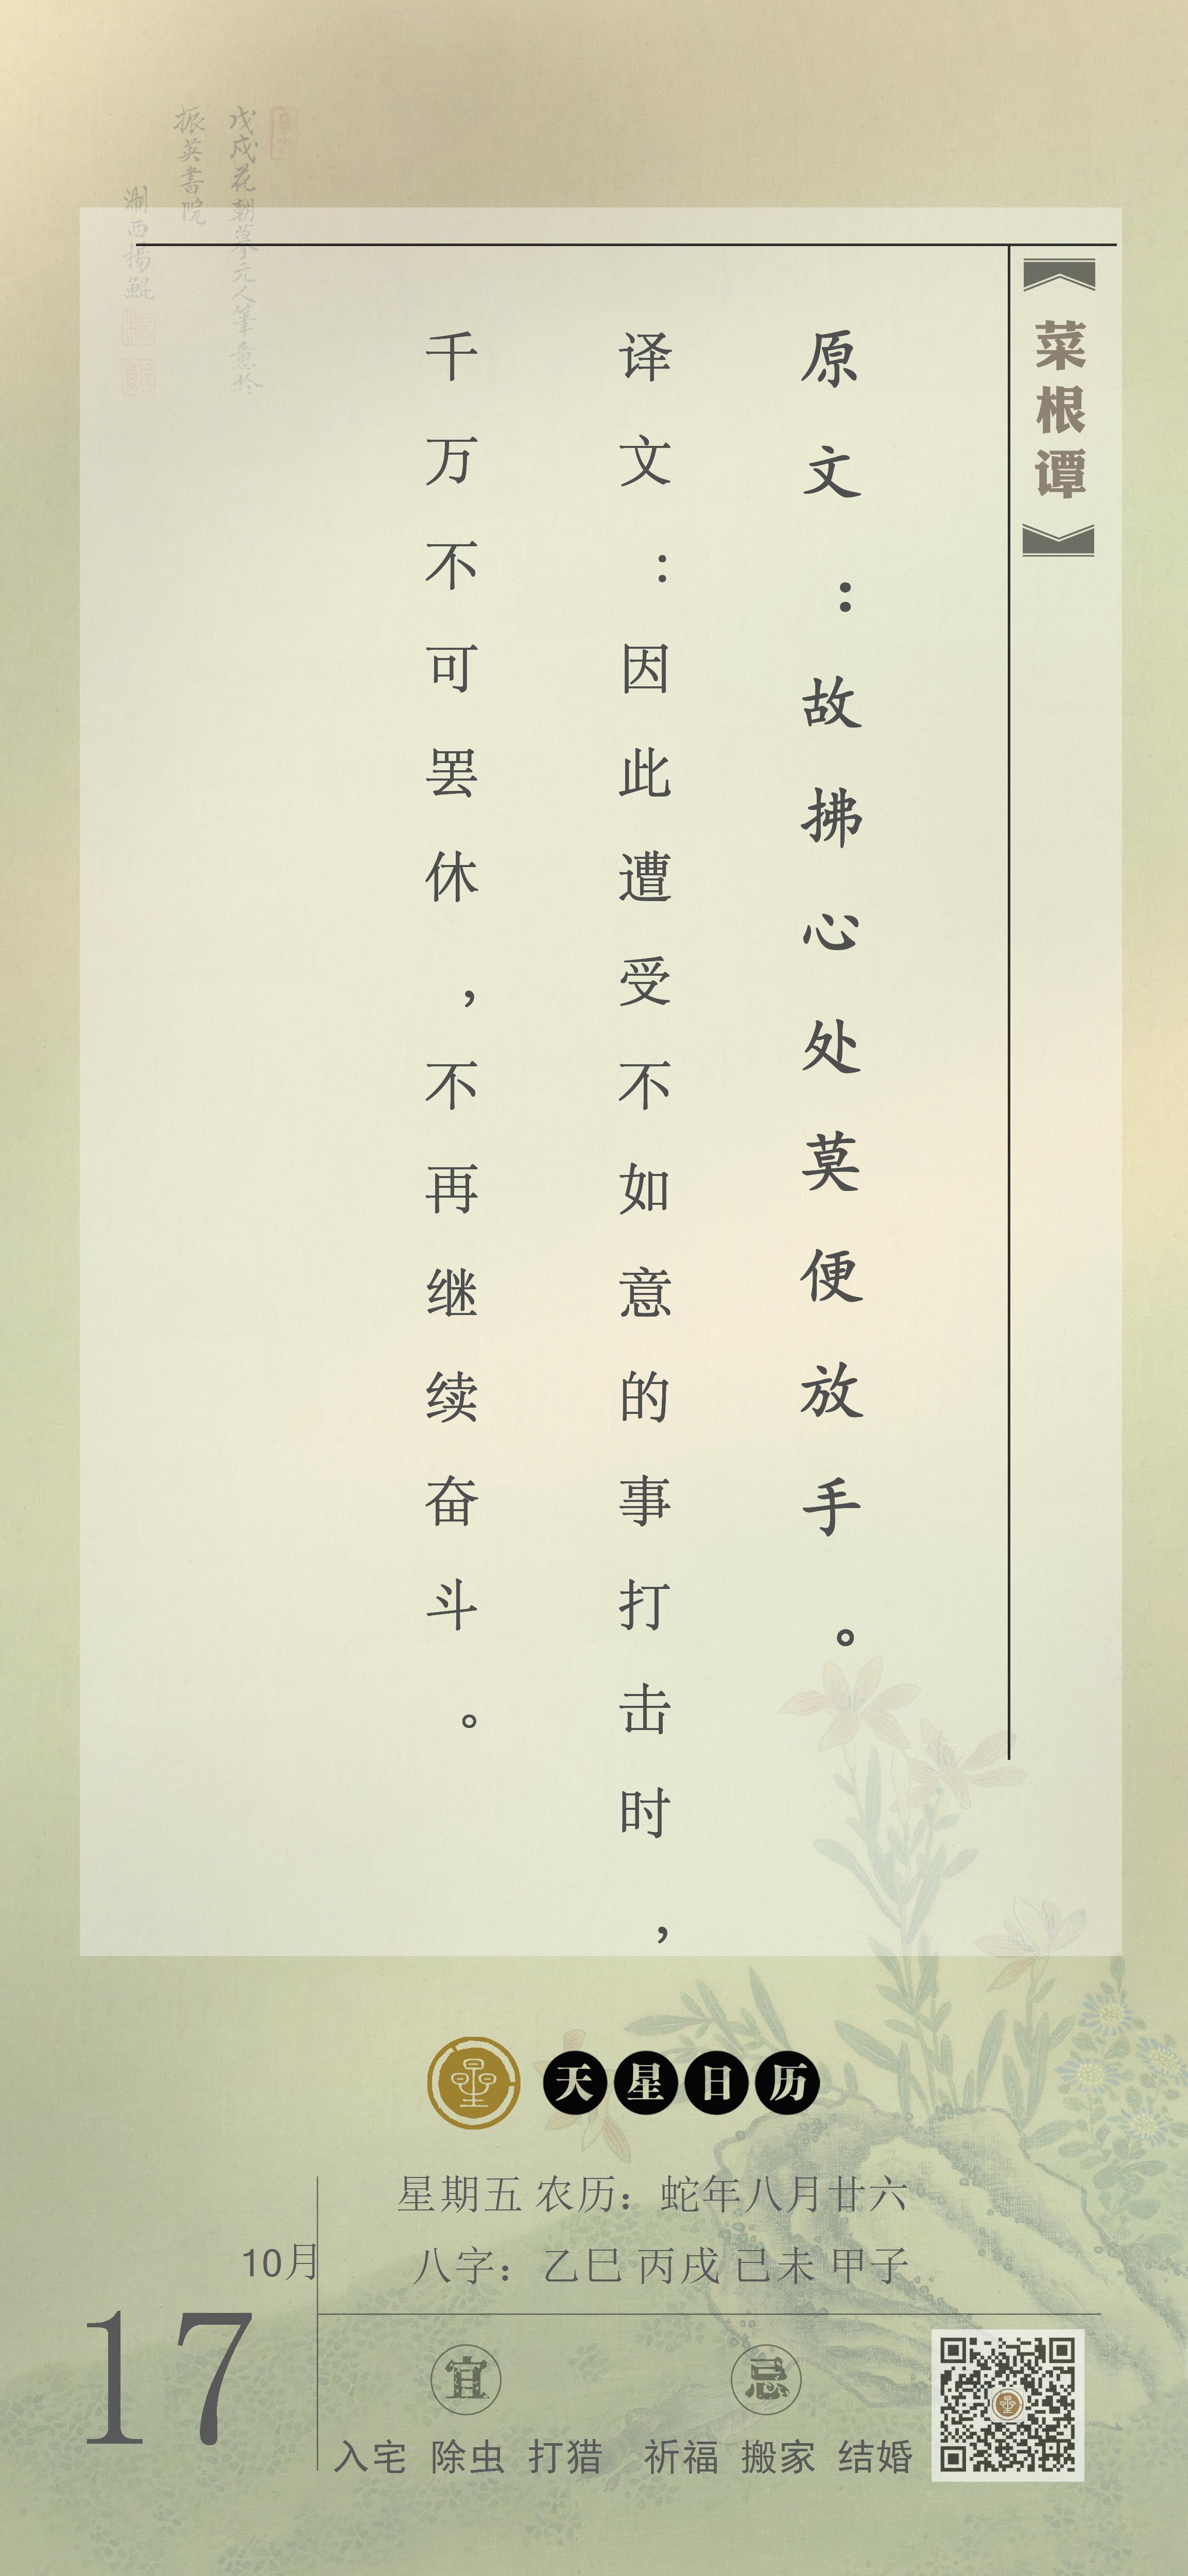 菜根谭
原文：故拂心处莫便放手。
译文：因此遭受不如意的事打击时，
千万不可罢休，不再继续奋斗。
戊戌花朝摹元人筆意於
振英書院
浙西楊鯤
天星日历
星期五 农历：蛇年八月廿六
10月
八字：乙巳 丙戌 己未 甲子
17
宜
忌
入宅 除虫 打猎
祈福 搬家 结婚